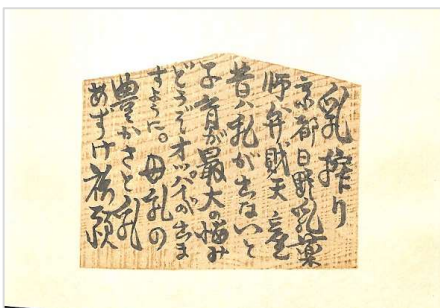 乳搾り
京都日野乳薬
師八弁財天
昔ハ乳が出ないと
子育が最大の悩み
どうぞオッパイが出ま
すように。母乳の
豊かさと乳
あずけ祈願